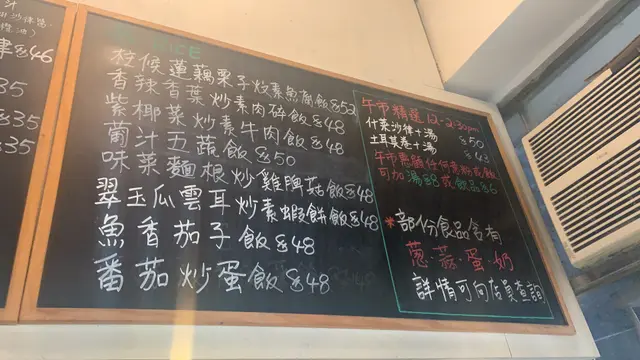 汁
&46
&35
&35
&35
RICE
柱候蓮藕栗子炆素魚腐飯&52
香辣香葉炒素肉碎飯&48
紫椰菜炒素牛肉飯&48
葡汁五蔬飯&50
味菜麵根炒雞脾菇飯&48
翠玉瓜雲耳炒素蝦餅飯&48
魚香茄子飯&48
番茄炒蛋飯&48
午市精選 12-2:30pm
什菜沙律+湯 &50
土耳其卷+湯 &43
午市惠顧任何意粉或飯
可加湯&8或飲品&6
*部份食品含有
蔥·蒜·蛋·奶
詳情可向店員查詢